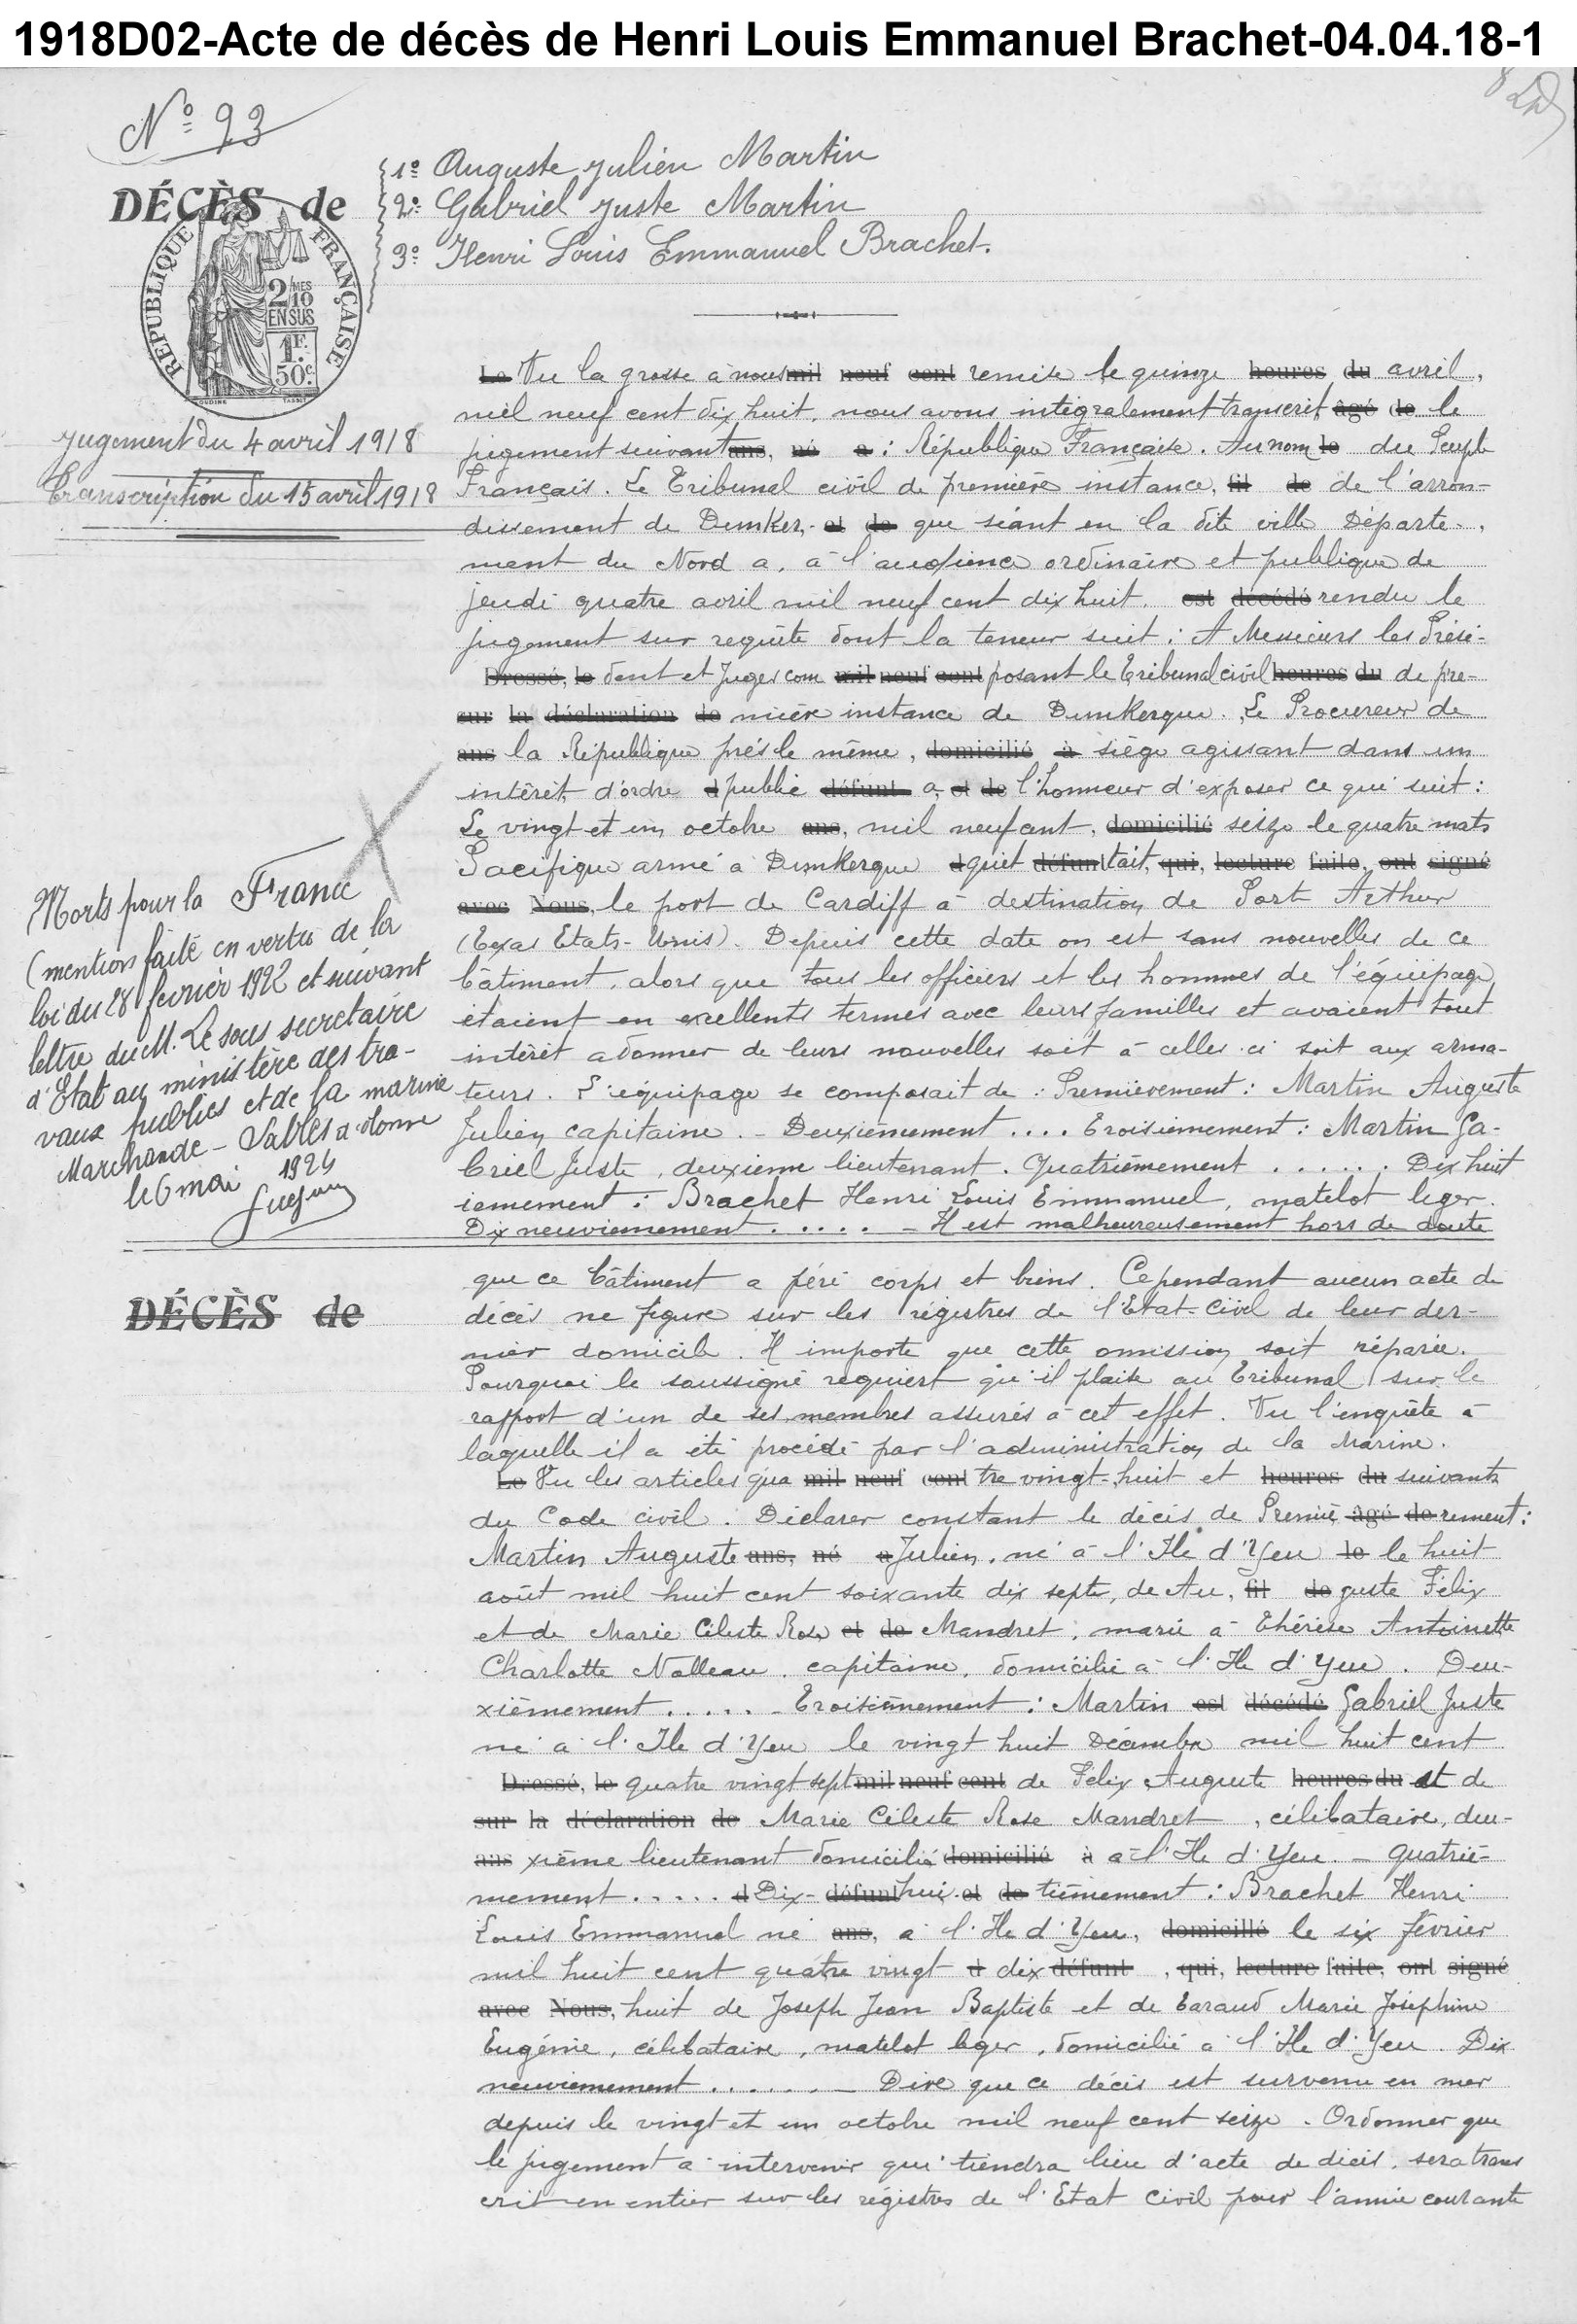 1918D02-Acte de décès de Henri Louis Emmanuel Brachet-04.04.18-1
N° 23
DÉCÈS de
1° Auguste Julien Martin
2° Gabriel Juste Martin
3° Henri Louis Emmanuel Brachet.
RÉPUBLIQUE FRANÇAISE
2/10 MES
EN SUS
1F.
50c.
Jugement du 4 avril 1918
Transcription du 15 avril 1918
Le Vu la grosse à nous mil neuf cent remise le quinze heures du avril,
mil neuf cent dix huit, nous avons intégralement transcrit âgé de le
jugement suivant ans, né a : République Française. Au nom le du Peuple
Français. Le Tribunal civil de première instance, fil de de l'arron-
dissement de Dunker- et de que séant en la dite ville Départe-
ment du Nord a, à l'audience ordinaire et publique de
jeudi quatre avril mil neuf cent dix huit. est décédé rendu le
jugement sur requête dont la teneur suit : A Messieurs les Prési-
Dressé, le dent et Juges com mil neuf cent posant le Tribunal civil heures du de pre-
sur la déclaration de mière instance de Dunkerque. Le Procureur de
ans la République près le même, domicilié à siège agissant dans un
intérêt d'ordre d public défunt a, et de l'honneur d'exposer ce qui suit :
Le vingt et un octobre ans, mil neuf cent, domicilié seize le quatre mats
Pacifique armé à Dunkerque d quiet défunt tait, qui, lecture faite, ont signé
avec Nous, le port de Cardiff à destination de Port Arthur
(Texas Etats-Unis). Depuis cette date on est sans nouvelles de ce
bâtiment, alors que tous les officiers et les hommes de l'équipage
étaient en excellents termes avec leurs familles et avaient tout
intérêt a donner de leurs nouvelles soit à celles-ci soit aux arma-
teurs. L'équipage se composait de : Premièrement : Martin Auguste
Julien capitaine. - Deuxièmement .... Troisièmement : Martin Ga-
briel Juste, deuxième lieutenant. Quatrièmement ...... Dix huit
ièmement : Brachet Henri Louis Emmanuel, matelot leger.
Dix neuvièmement ..... - Il est malheureusement hors de doute
Morts pour la France
(mention faite en vertu de la
loi du 28 février 1922 et suivant
lettre du M. Le sous secretaire
d'Etat au ministère des tra-
vaux publics et de la marine
Marchande - Sables d'Olonne
le 6 mai 1924
DÉCÈS de
que ce bâtiment a péri corps et biens. Cependant aucun acte de
décès ne figure sur les registres de l'Etat-civil de leur der-
nier domicile. Il importe que cette omission soit réparée.
Pourquoi le soussigné requiert qu'il plaise au Tribunal sur le
rapport d'un de ses membres assurés à cet effet. Vu l'enquête à
laquelle il a été procédé par l'administration de la Marine.
Le Vu les articles qua mil neuf cent tre vingt-huit et heures du suivants
du Code civil. Déclarer constant le décès de Premiè âgé de rement :
Martin Auguste ans, né a Julien, né à l'Ile d'Yeu le le huit
août mil huit cent soixante dix sept, de Au, fil de guste Félix
et de Marie Céleste Rose et de Mandret, marié à Thérèse Antoinette
Charlotte Nolleau, capitaine, domicilié à l'Ile d'Yeu. Deu-
xièmement ..... - Troisièmement : Martin est décédé Gabriel Juste
né à l'Ile d'Yeu le vingt huit Décembre mil huit cent
Dressé, le quatre vingt sept mil neuf cent de Félix Auguste heures du et de
sur la déclaration de Marie Céleste Rose Mandret, célibataire, deu-
ans xième lieutenant domicilié domicilié à à l'Ile d'Yeu. - Quatriè-
mement ..... d Dix- défunt hui et de tièmement : Brachet Henri
Louis Emmanuel né ans, à l'Ile d'Yeu, domicilié le six février
mil huit cent quatre vingt d dix défunt , qui, lecture faite, ont signé
avec Nous, huit de Joseph Jean Baptiste et de Taraud Marie Joséphine
Eugénie, célibataire, matelot leger, domicilié à l'Ile d'Yeu. Dix
neuvièmement ...... - Dire que ce décès est survenu en mer
depuis le vingt et un octobre mil neuf cent seize. Ordonner que
le jugement à intervenir qui tiendra lieu d'acte de décès, sera trans
crit en entier sur les régistres de l'Etat civil pour l'année courante